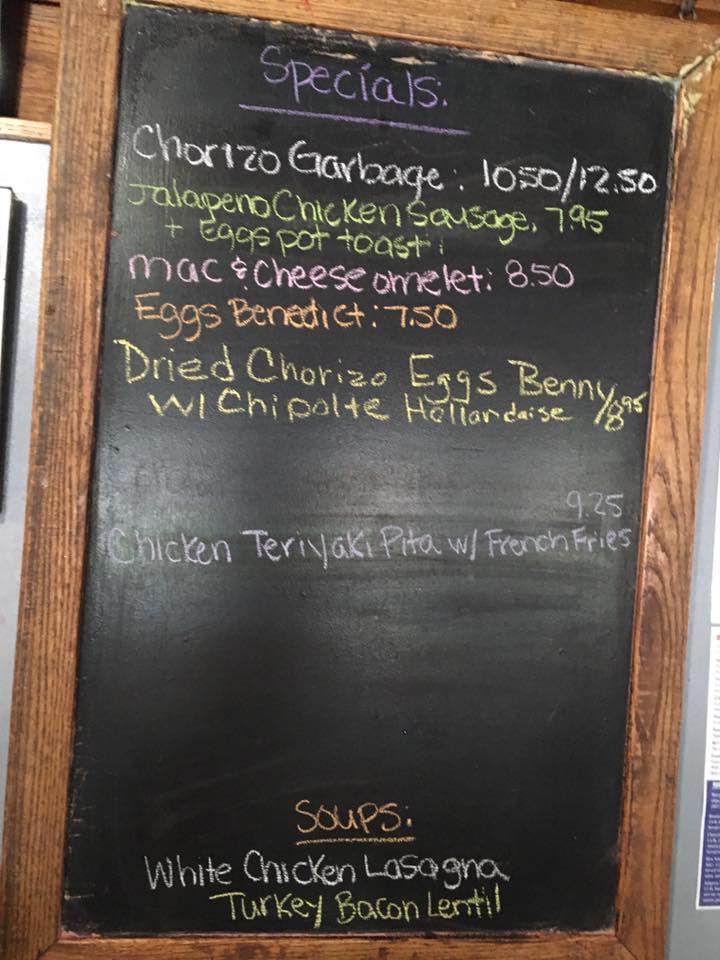 Specials:
Chorizo Garbage: 10.50/12.50
Jalapeno Chicken Sausage. 7.95
+ Eggs pot toast:
mac & Cheese omelet: 8.50
Eggs Benedict: 7.50
Dried Chorizo Eggs Benny/8.95
w/ Chipolte Hollandaise
9.25
Chicken Teriyaki Pita w/ French Fries
Soups:
White Chicken Lasagna
Turkey Bacon Lentil